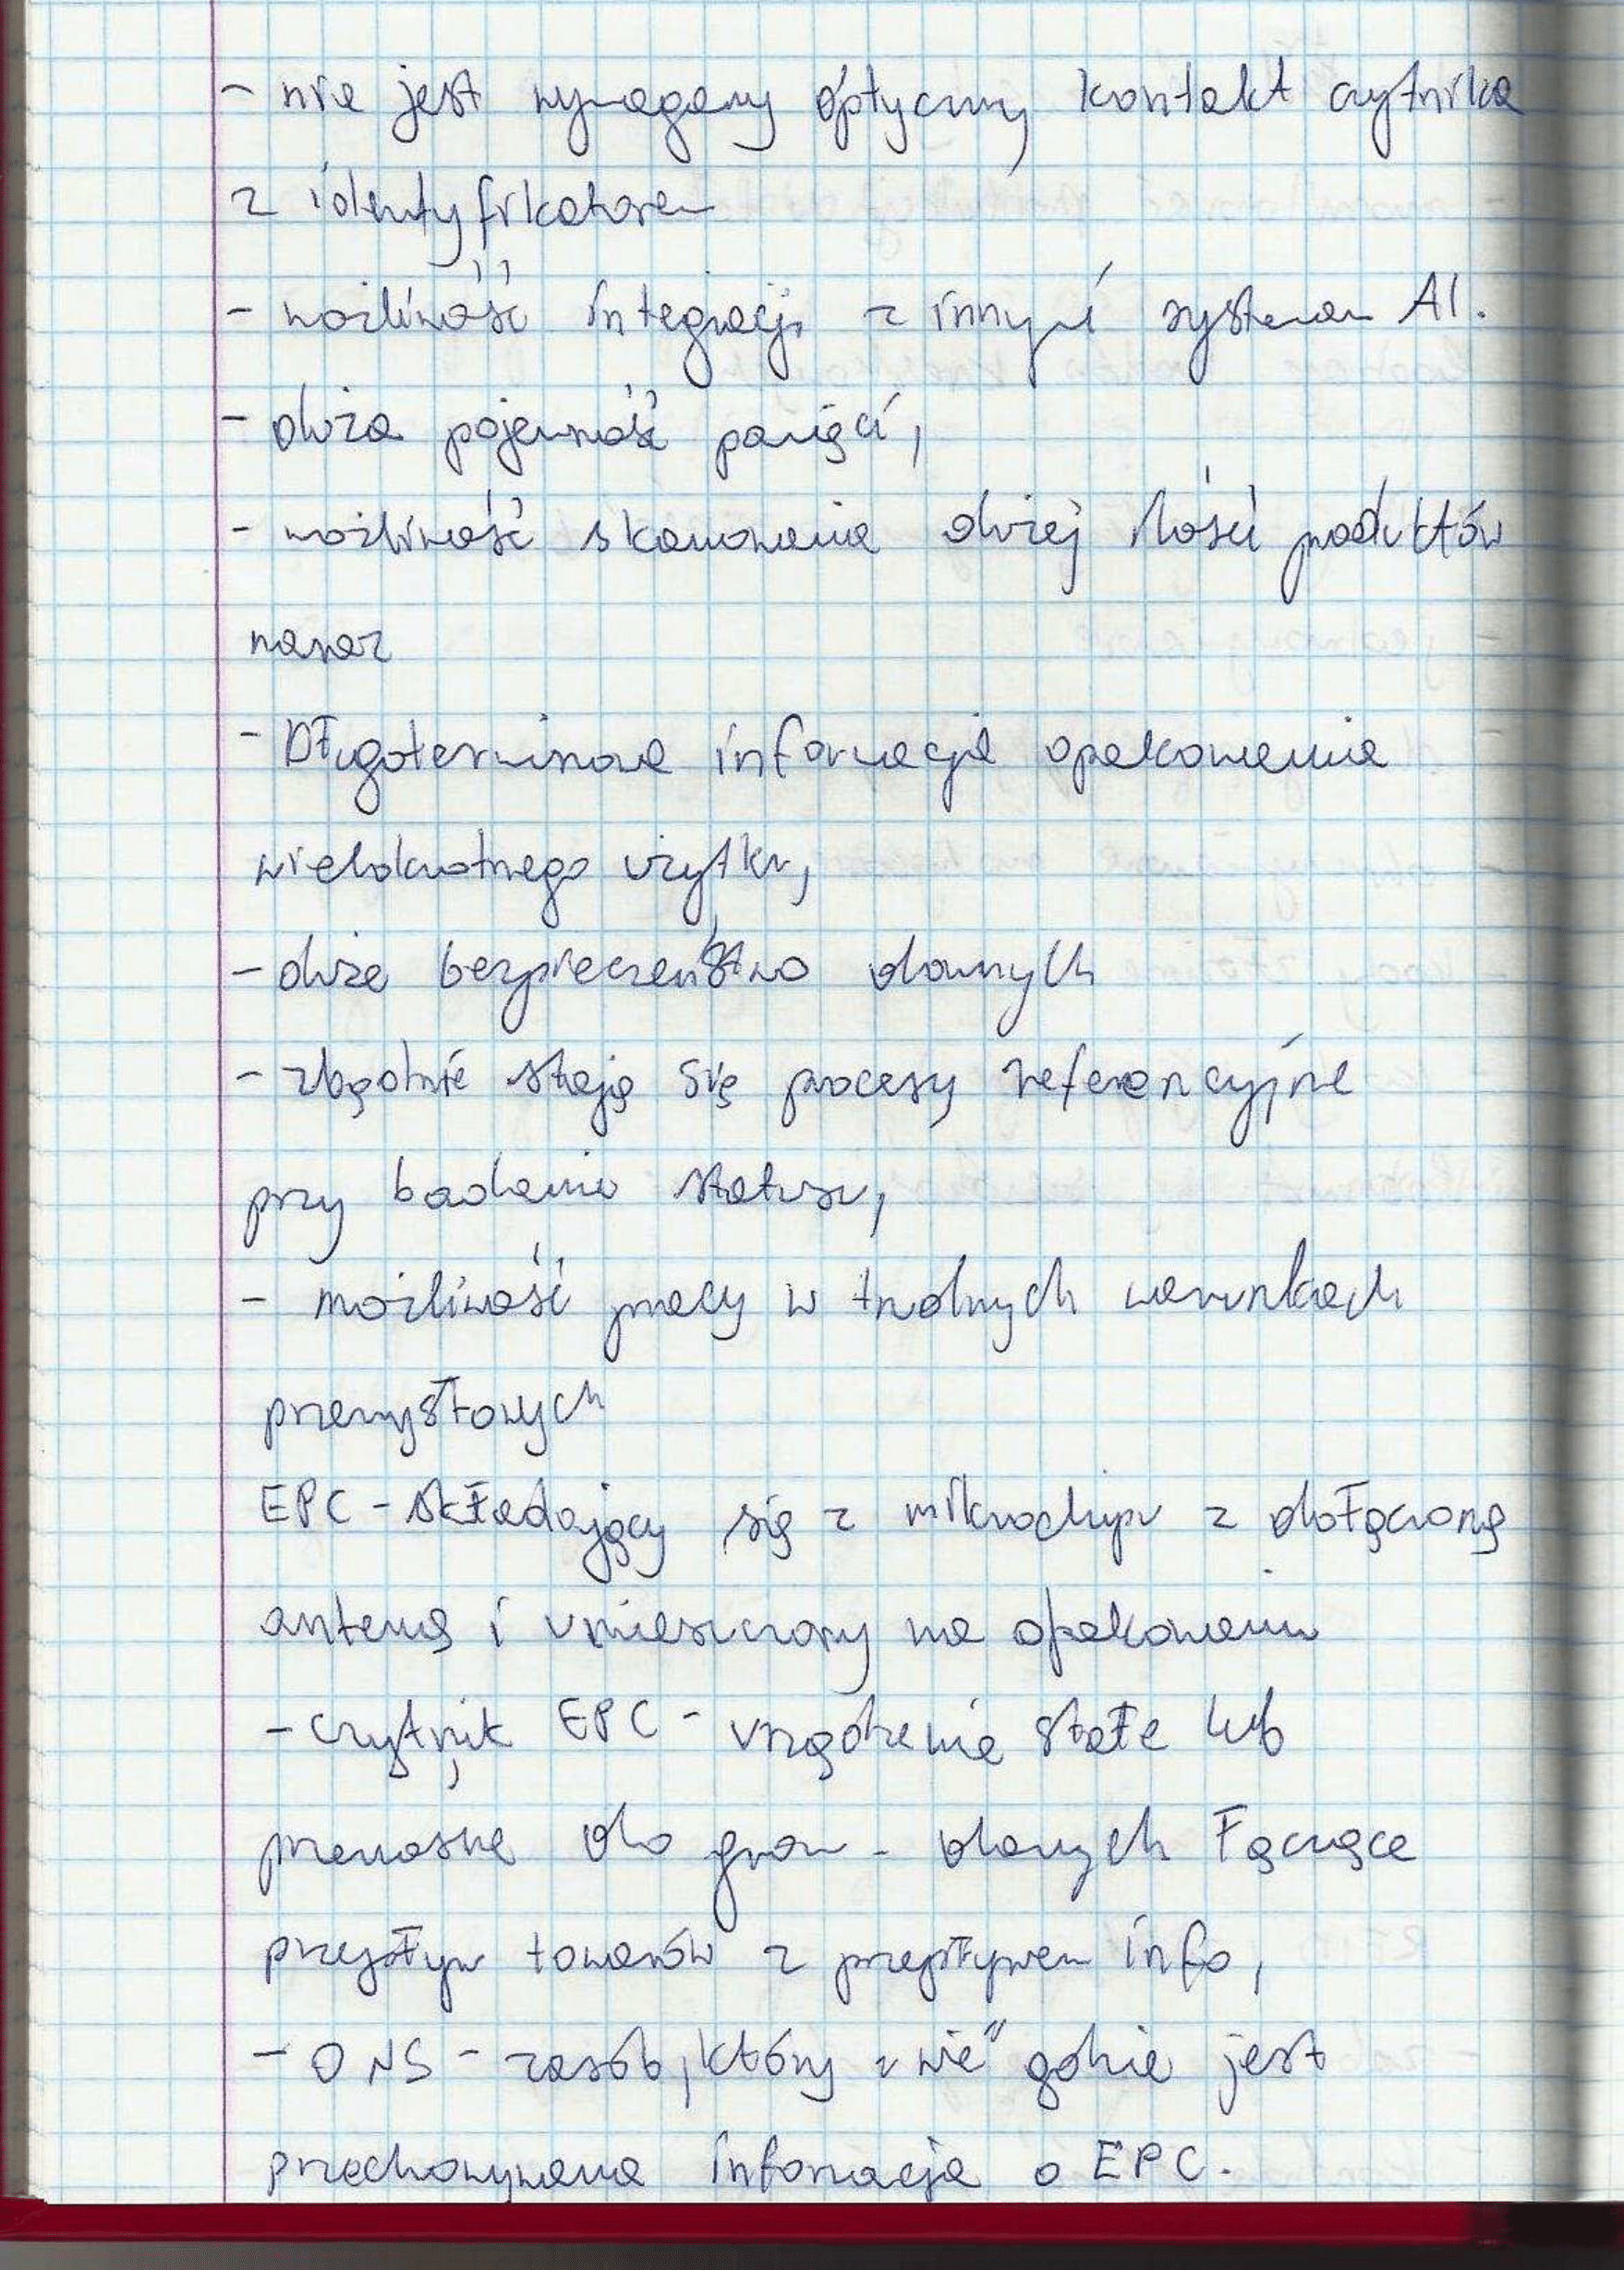 - nie jest wymagany optyczny kontakt czytnika
z identyfikatorem
- możliwość integracji z innymi systemem AI.
- duża pojemność pamięci,
- możliwość skanowania dużej ilości produktów
naraz
- Długoterminowe informacje opakowania
wielokrotnego użytku,
- duże bezpieczeństwo danych
- zbędnie stają się procesy referencyjne
przy badaniu statusu,
- możliwość pracy w trudnych warunkach
przemysłowych
EPC - składający się z mikrochipu z dołączoną
anteną i umieszczony na opakowaniu
- czytnik EPC - urządzenie stałe lub
przenośne do grom. danych łączące
przepływ towarów z przepływem info,
- ONS - zasób, który "wie" gdzie jest
przechowywana informacja o EPC.